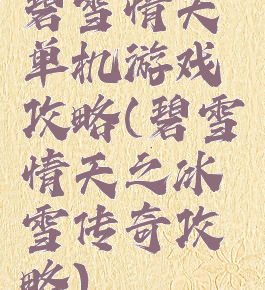 碧雪情天
单机游戏
攻略(碧雪
情天之冰
雪传奇攻
略)